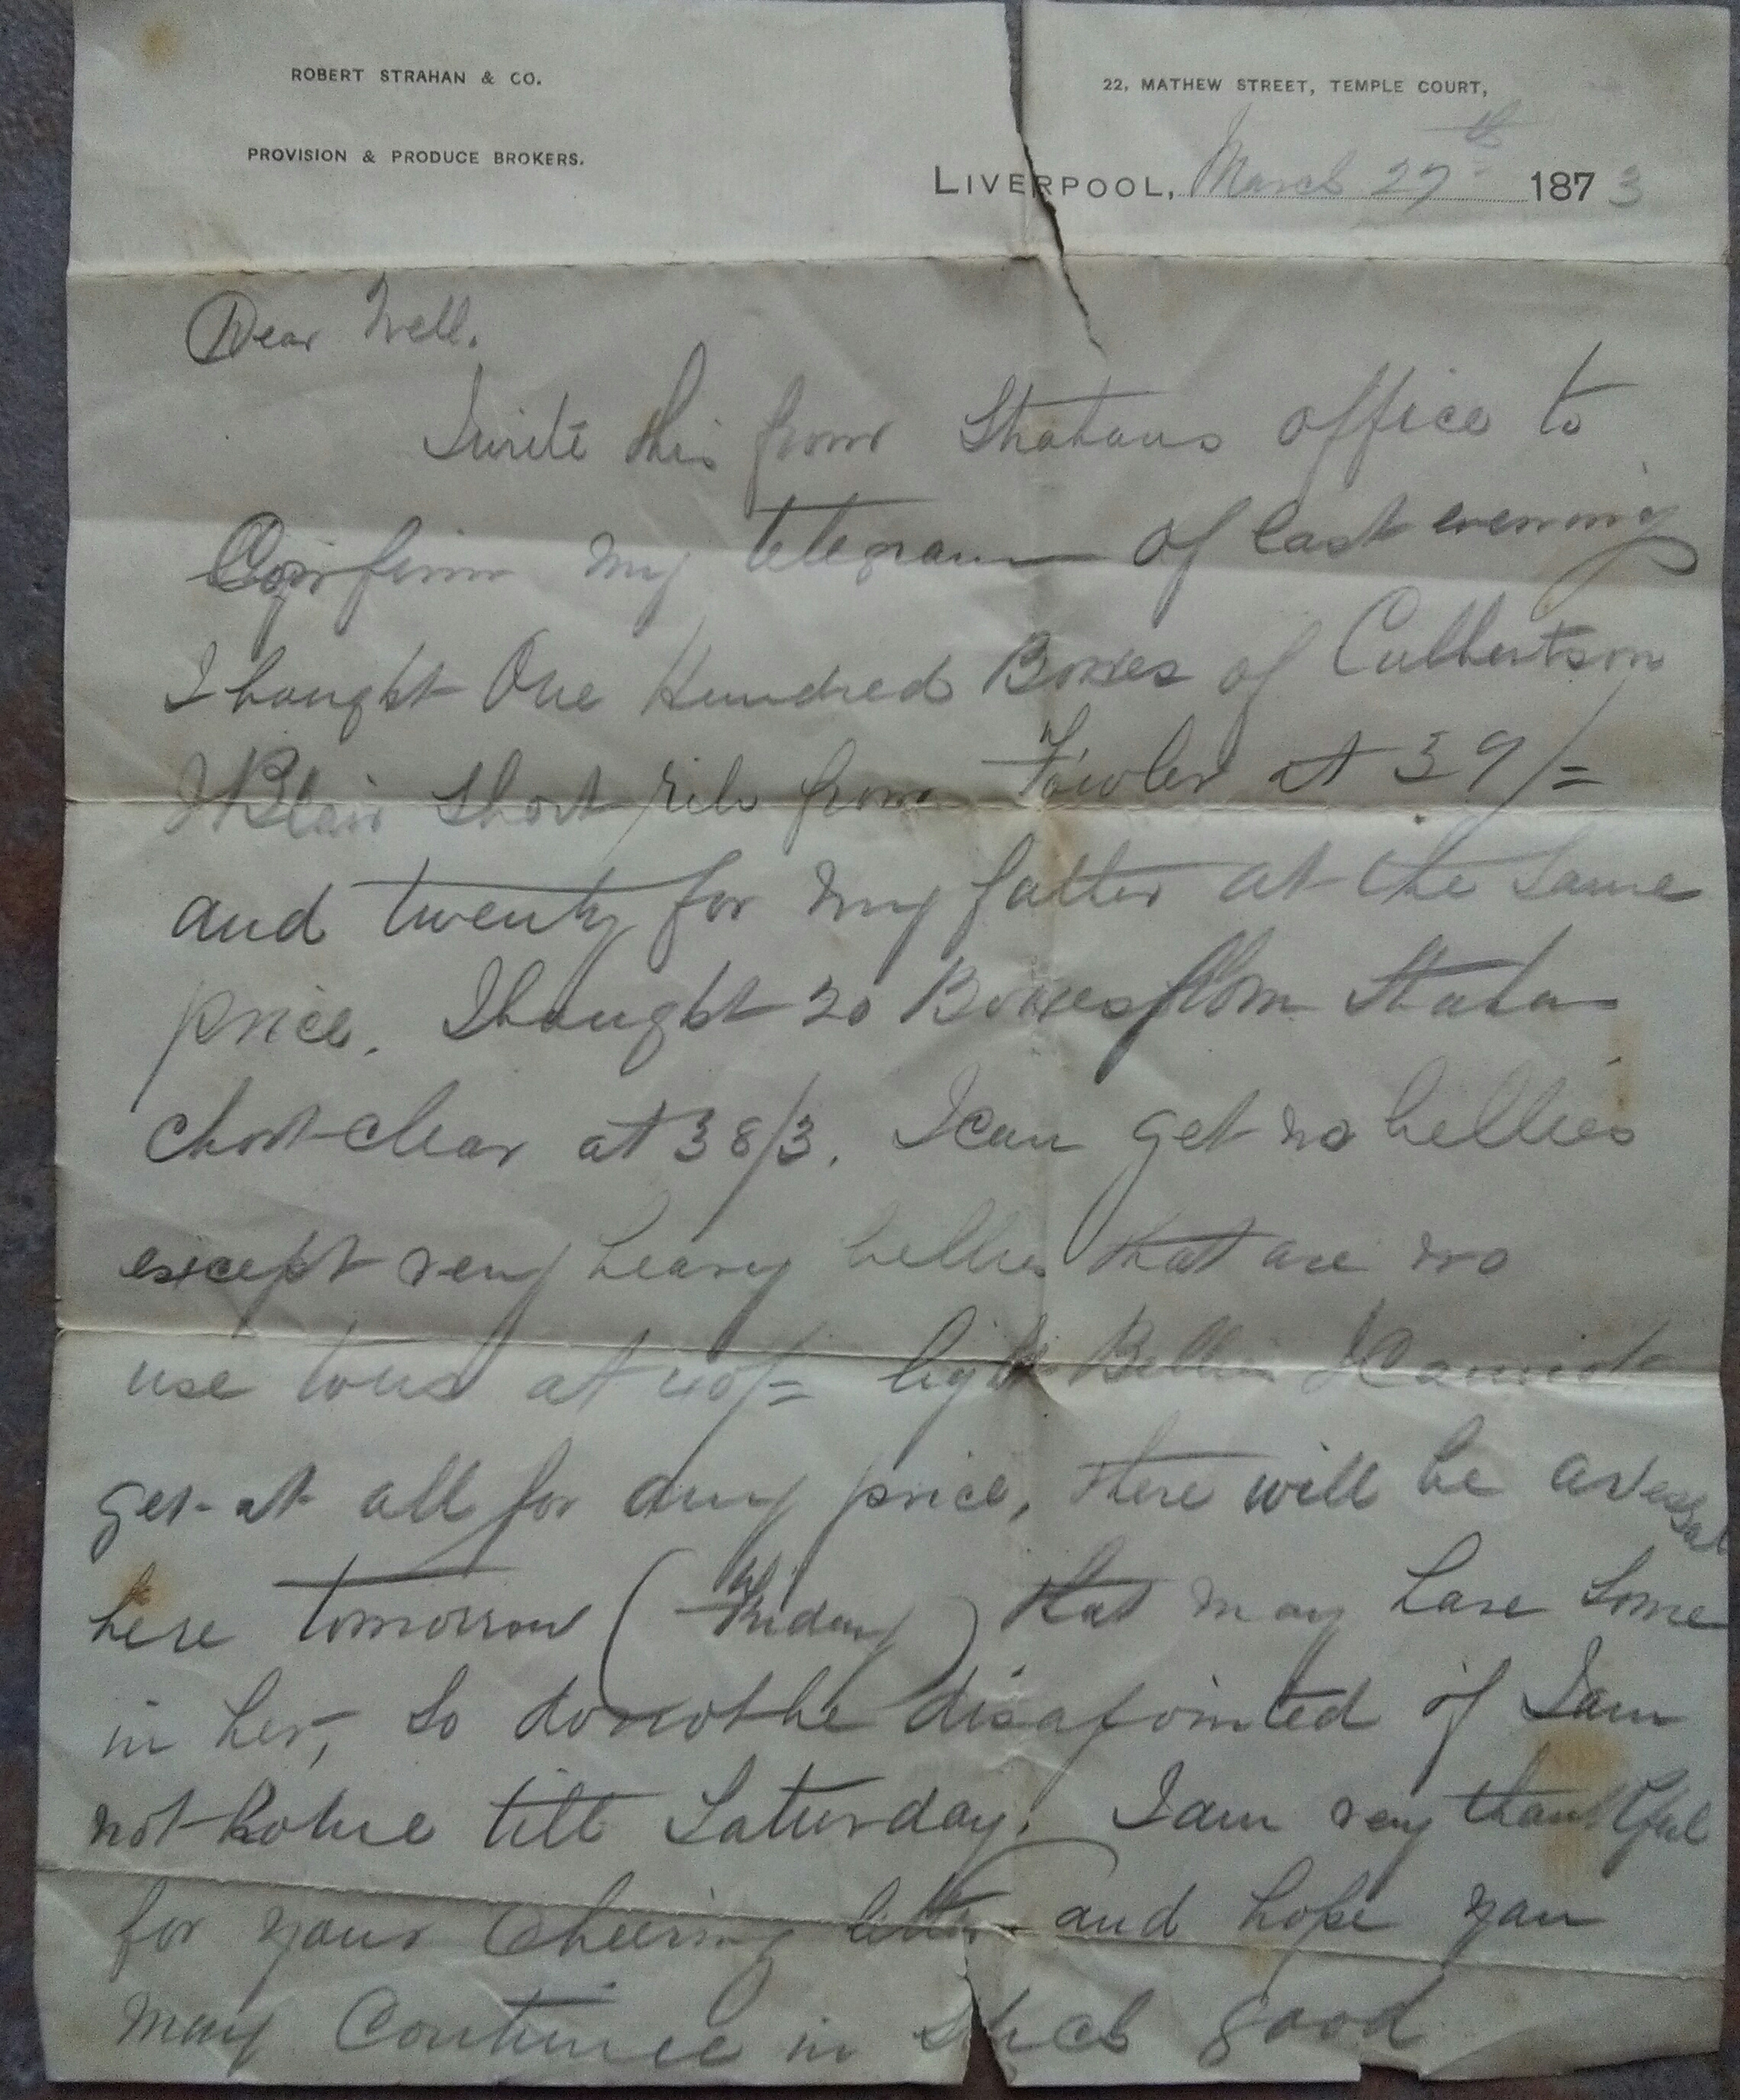 ROBERT STRAHAN & CO.
PROVISION & PRODUCE BROKERS.
22, MATHEW STREET, TEMPLE COURT,
LIVERPOOL, March 27th 1873
Dear Nell.
I write this from Strahans office to
Confirm my telegram of last evening
I bought One Hundred Boxes of Culbertson
Blair Short rib from Fowler at 39/=
and twenty for my father at the same
price. I bought 20 Boxes from Strahan
short clear at 38/3. I can get no bellies
except very heavy bellies that are no
use to us at 40/= light Bellies I cannot
get at all for any price, there will be a vessal
here tomorrow (Friday) that may have some
in her, so do not be disapointed if I am
not home till Saturday. I am very thankful
for your Cheering letter and hope you
may Continue in such good